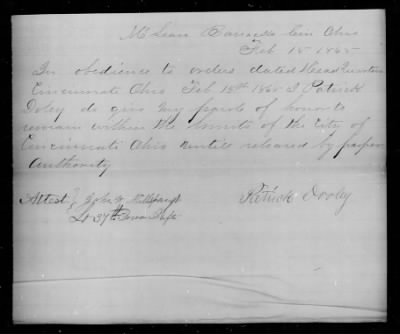 McLean Barracks Cin Ohio
Feb 15 1865
In obedience to orders dated Head Quarters
Cincinnati Ohio Feb 15th 1865 I Patrick
Doley do give my parole of honor to
remain within the limits of the City of
Cincinnati Ohio untill released by proper
Authority
Attest John W
Lt 37th Iowa Inft
Patrick Dooly